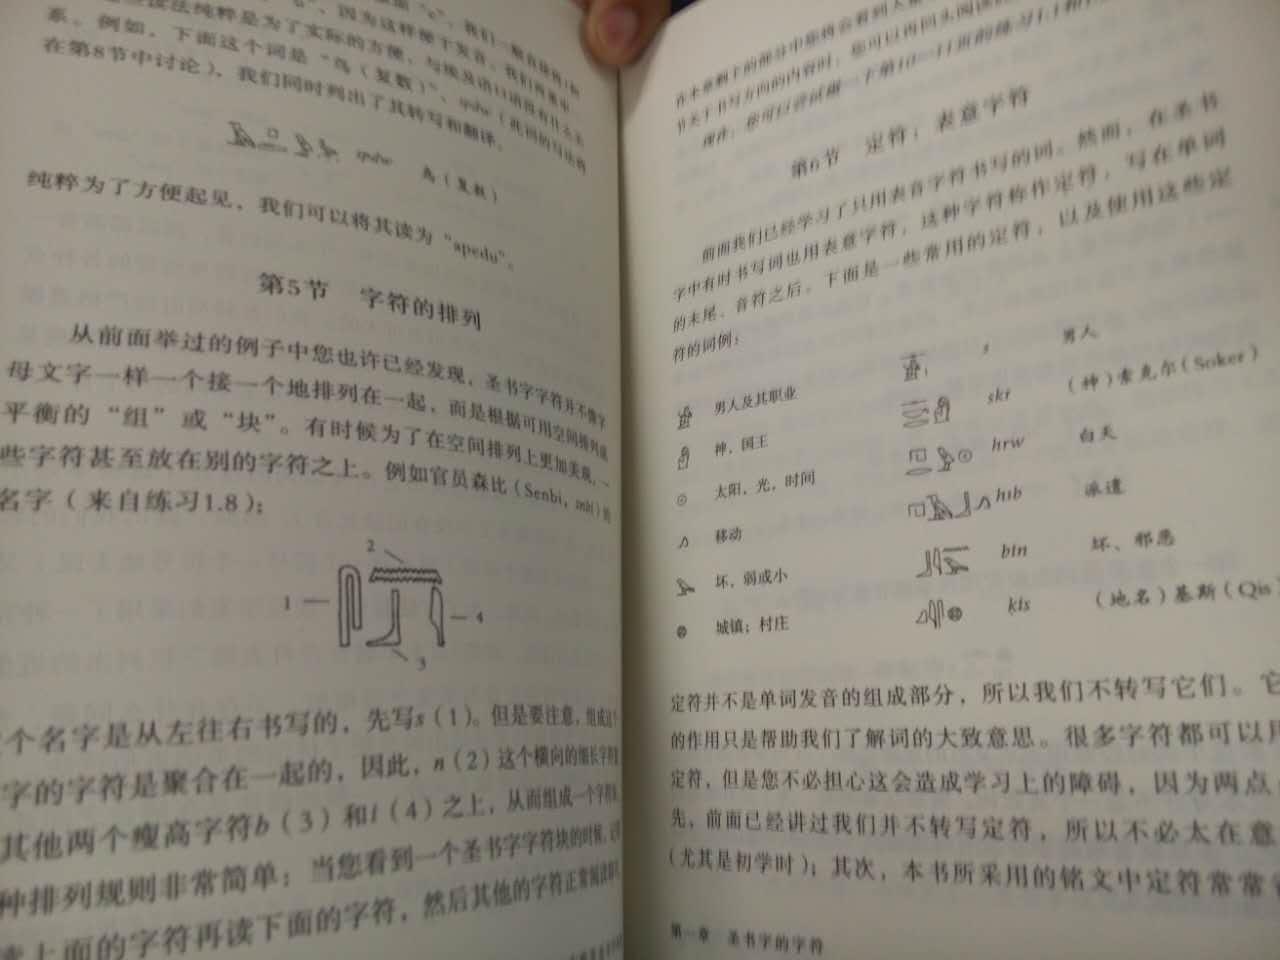 系。例如，下面这个词是“鸟（复数）”，
在第8节中讨论），我们同时列出了其转写和翻译。
鸟（复数）
纯粹为了方便起见，我们可以将其读为“apedu”。
第5节 字符的排列
从前面举过的例子中您也许已经发现，圣书字字符并不像字
母文字一样一个接一个地排列在一起，而是根据可用空间排列成
平衡的“组”或“块”。有时候为了在空间排列上更加美观，一
些字符甚至放在别的字符之上。例如官员森比（Senbi，snbi）的
名字（来自练习1.8）：
2
1
4
3
个名字是从左往右书写的，先写s（1）。但是要注意，组成这个
字的字符是聚合在一起的，因此，n（2）这个横向的细长字符在
其他两个瘦高字符b（3）和i（4）之上，从而组成一个字符块。
种排列规则非常简单：当您看到一个圣书字字符块的时候，
读上面的字符再读下面的字符，然后其他的字符正常阅读即可
第6节 定符：表意字符
前面我们已经学习了只用表音字符书写的词。然而，在圣书
字中有时书写词也用表意字符，这种字符称作定符，写在单词
的末尾、音符之后。下面是一些常用的定符，以及使用这些定
符的词例：
男人及其职业 s 男人
神，国王 skr （神）索克尔（Soker）
太阳，光，时间 hrw 白天
移动 hib 派遣
坏，弱或小 bin 坏、邪恶
城镇；村庄 kis （地名）基斯（Qis）
定符并不是单词发音的组成部分，所以我们不转写它们。它
的作用只是帮助我们了解词的大致意思。很多字符都可以用
定符，但是您不必担心这会造成学习上的障碍，因为两点
先，前面已经讲过我们并不转写定符，所以不必太在意
（尤其是初学时）；其次，本书所采用的铭文中定符常常
第一章 圣书字的字符